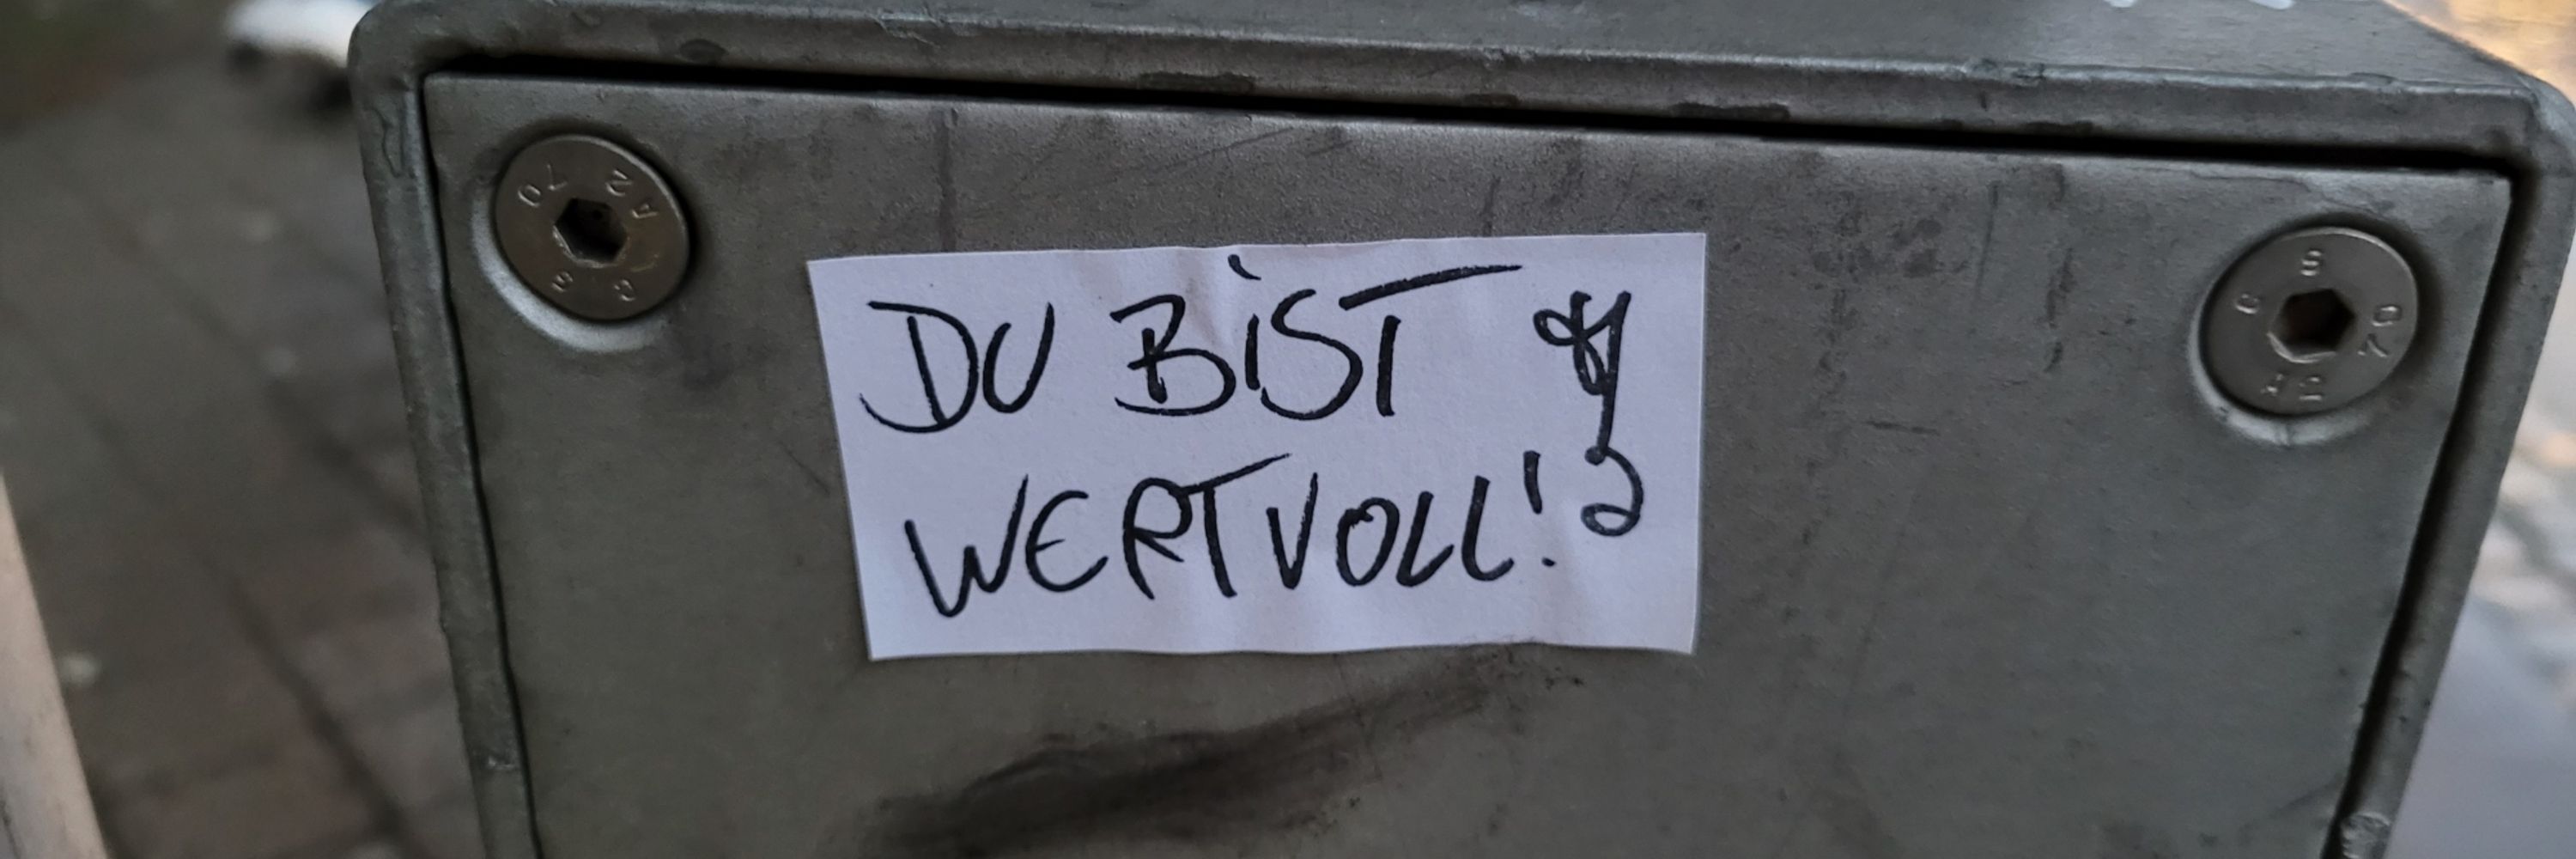 DU BiST
WERTVOLL!
A2 70
A2 70